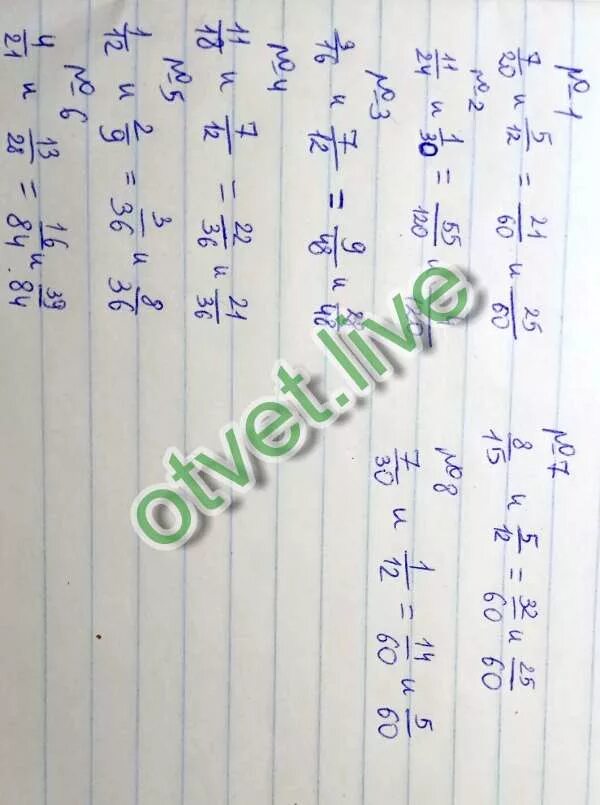 №1
7/20 и 5/12 = 21/60 и 25/60
№2
11/24 и 1/30 = 55/120 и 4/120
№3
3/16 и 7/12 = 9/48 и 28/48
№4
11/18 и 7/12 = 22/36 и 21/36
№5
1/12 и 2/9 = 3/36 и 8/36
№6
4/21 и 13/28 = 16/84 и 39/84
№7
8/15 и 5/12 = 32/60 и 25/60
№8
7/30 и 1/12 = 14/60 и 5/60
otvet.live